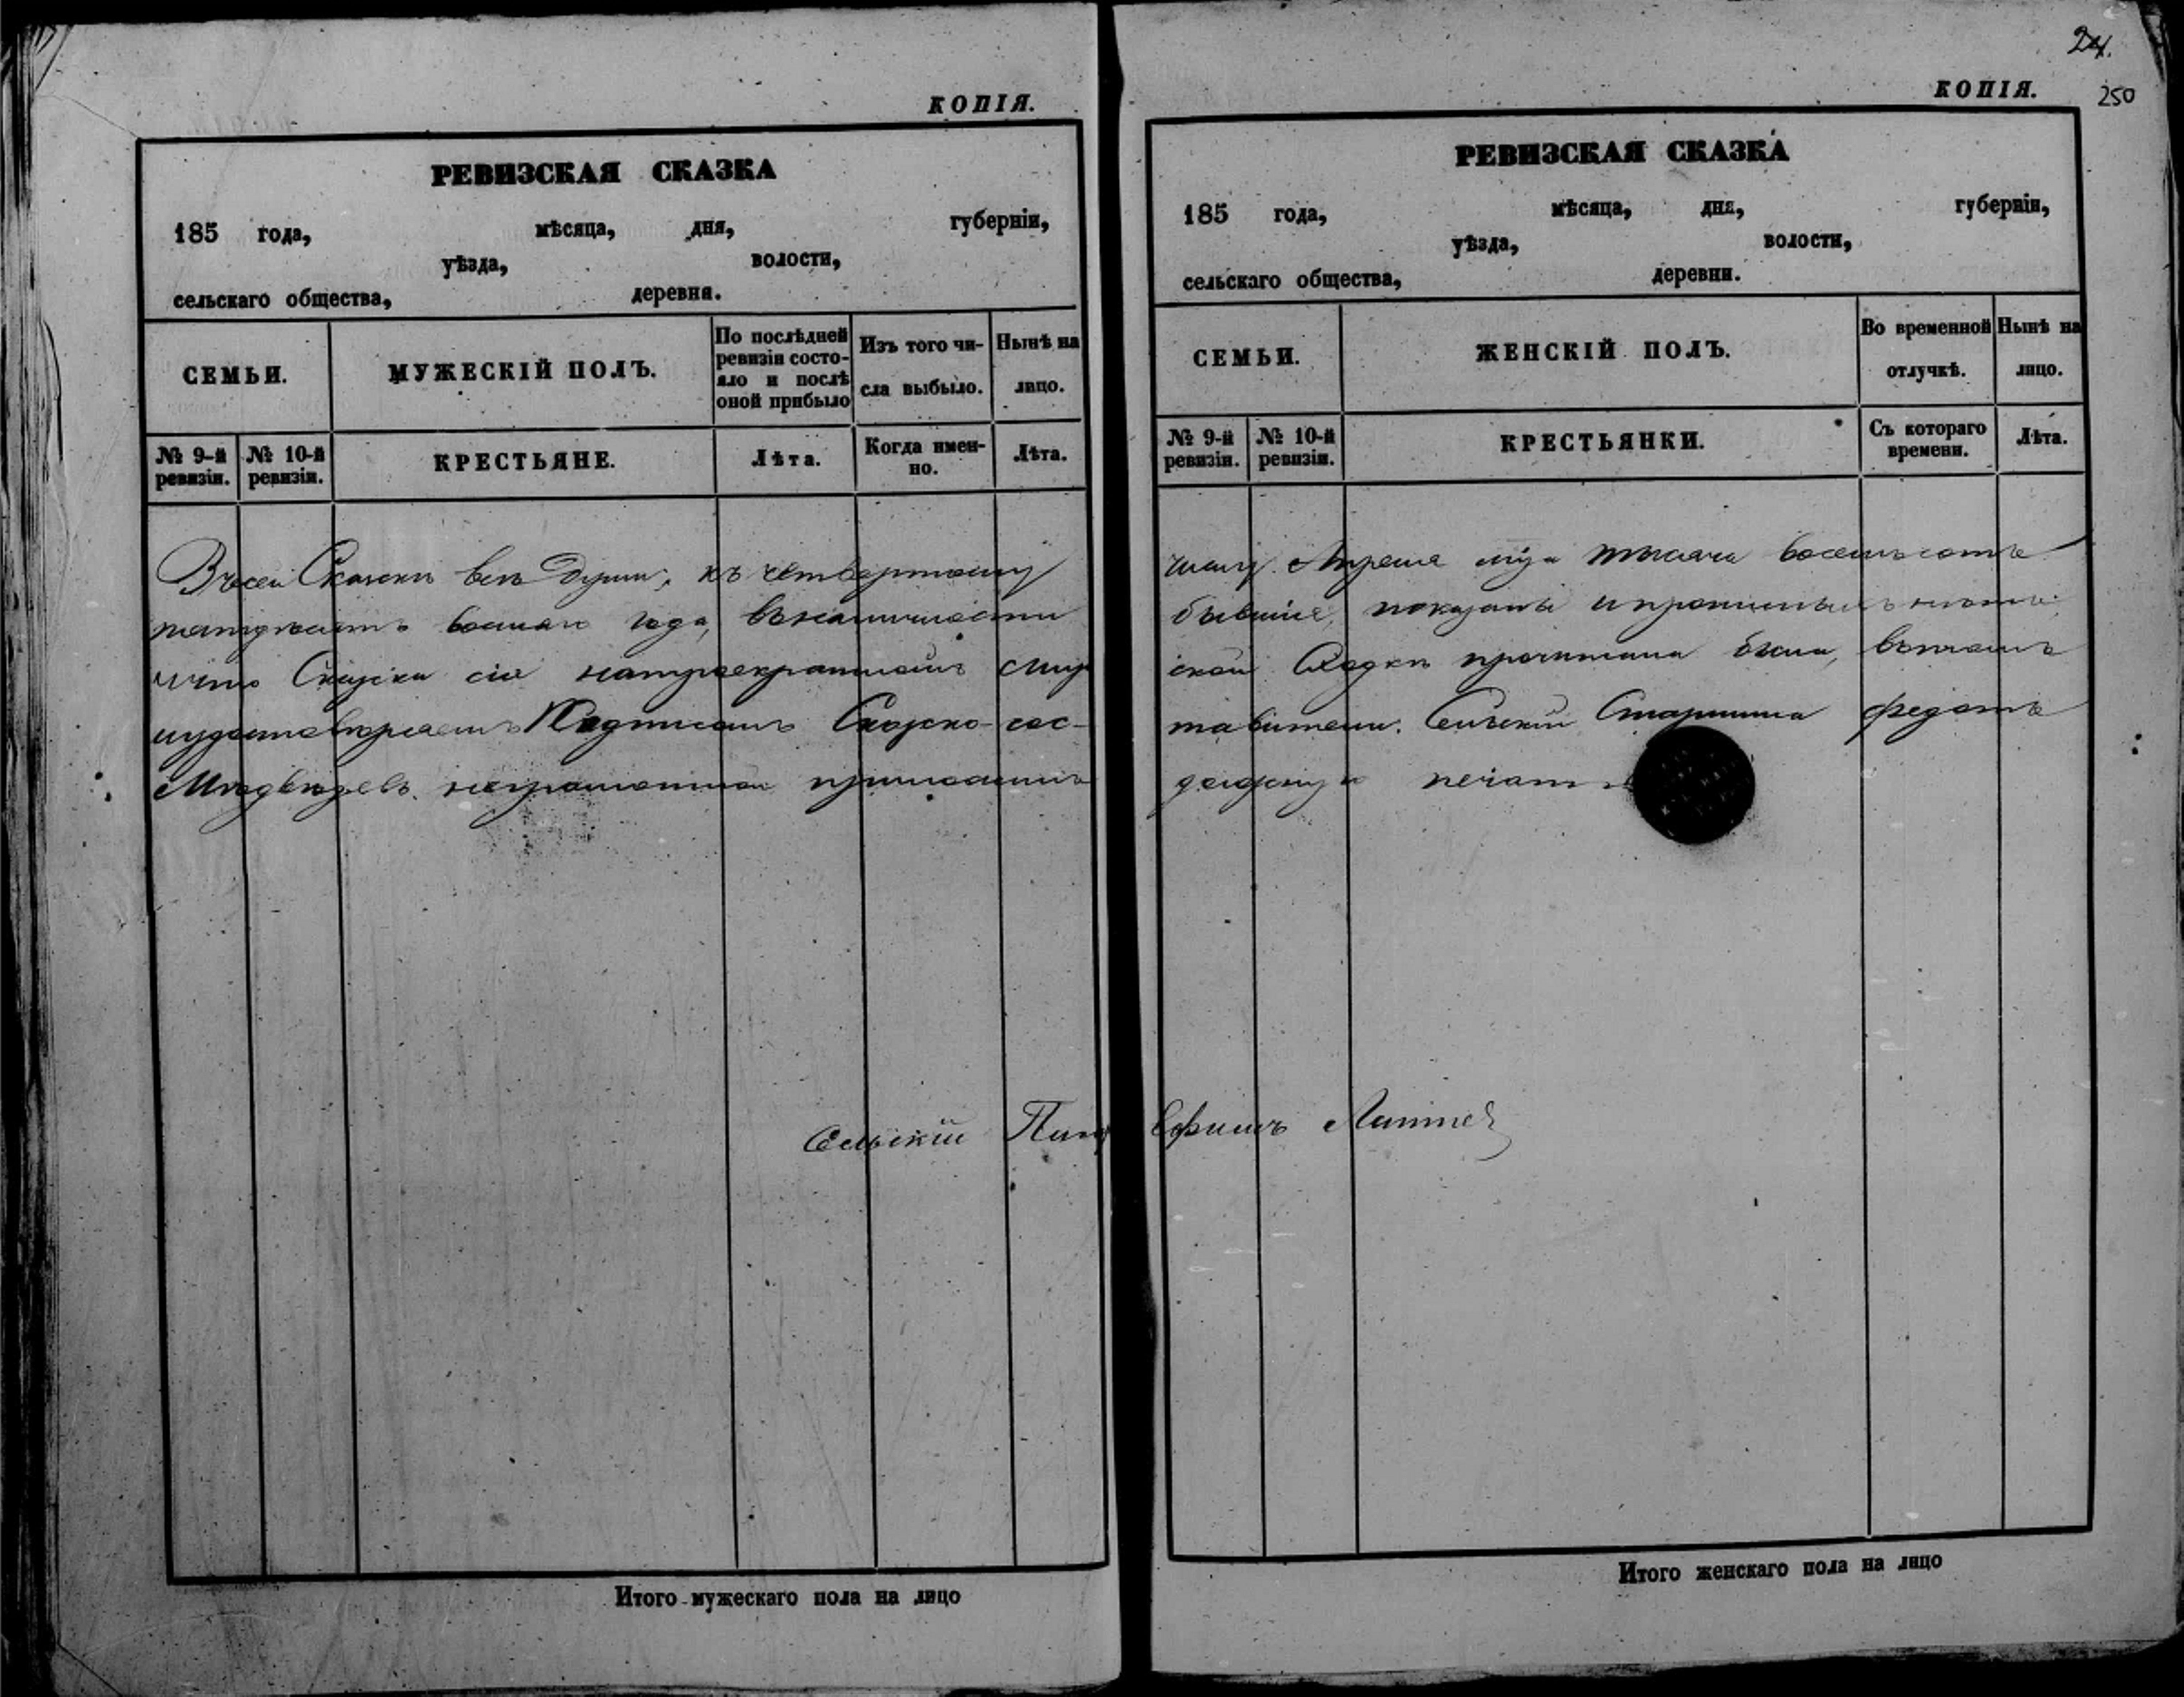 КОПІЯ.
РЕВИЗСКАЯ СКАЗКА
185 года, мѣсяца, дня, губерніи,
уѣзда, волости,
сельскаго общества, деревня.
СЕМЬИ.
МУЖЕСКІЙ ПОЛЪ.
По послѣдней ревизіи состо-
яло и послѣ оной прибыло
Изъ того чи-
сла выбыло.
Нынѣ на лицо.
№ 9-й ревизіи.
№ 10-й ревизіи.
КРЕСТЬЯНЕ.
Лѣта.
Когда имен-
но.
Лѣта.
Въ сей Сказкѣ всѣ Души, къ четвертому
восмаго года, въ наличности
и что Сказка сія мир
Подписалъ Сказко-сос-
Мѣдвѣдевъ неграмотной приложилъ
Сельскій Пис
Итого мужескаго пола на лицо
24.
250
КОПІЯ.
РЕВИЗСКАЯ СКАЗКА
185 года, мѣсяца, дня, губерніи,
уѣзда, волости,
сельскаго общества, деревни.
СЕМЬИ.
ЖЕНСКІЙ ПОЛЪ.
Во временной отлучкѣ.
Нынѣ на лицо.
№ 9-й ревизіи.
№ 10-й ревизіи.
КРЕСТЬЯНКИ.
Съ котораго времени.
Лѣта.
числу Апреля тысяча восемьсотъ
бывшіе, показаны и
ской Сходкѣ прочитана была, въ томъ
тавители. Сельскій Старшина Федотъ
должную печать
Ефимъ
Итого женскаго пола на лицо